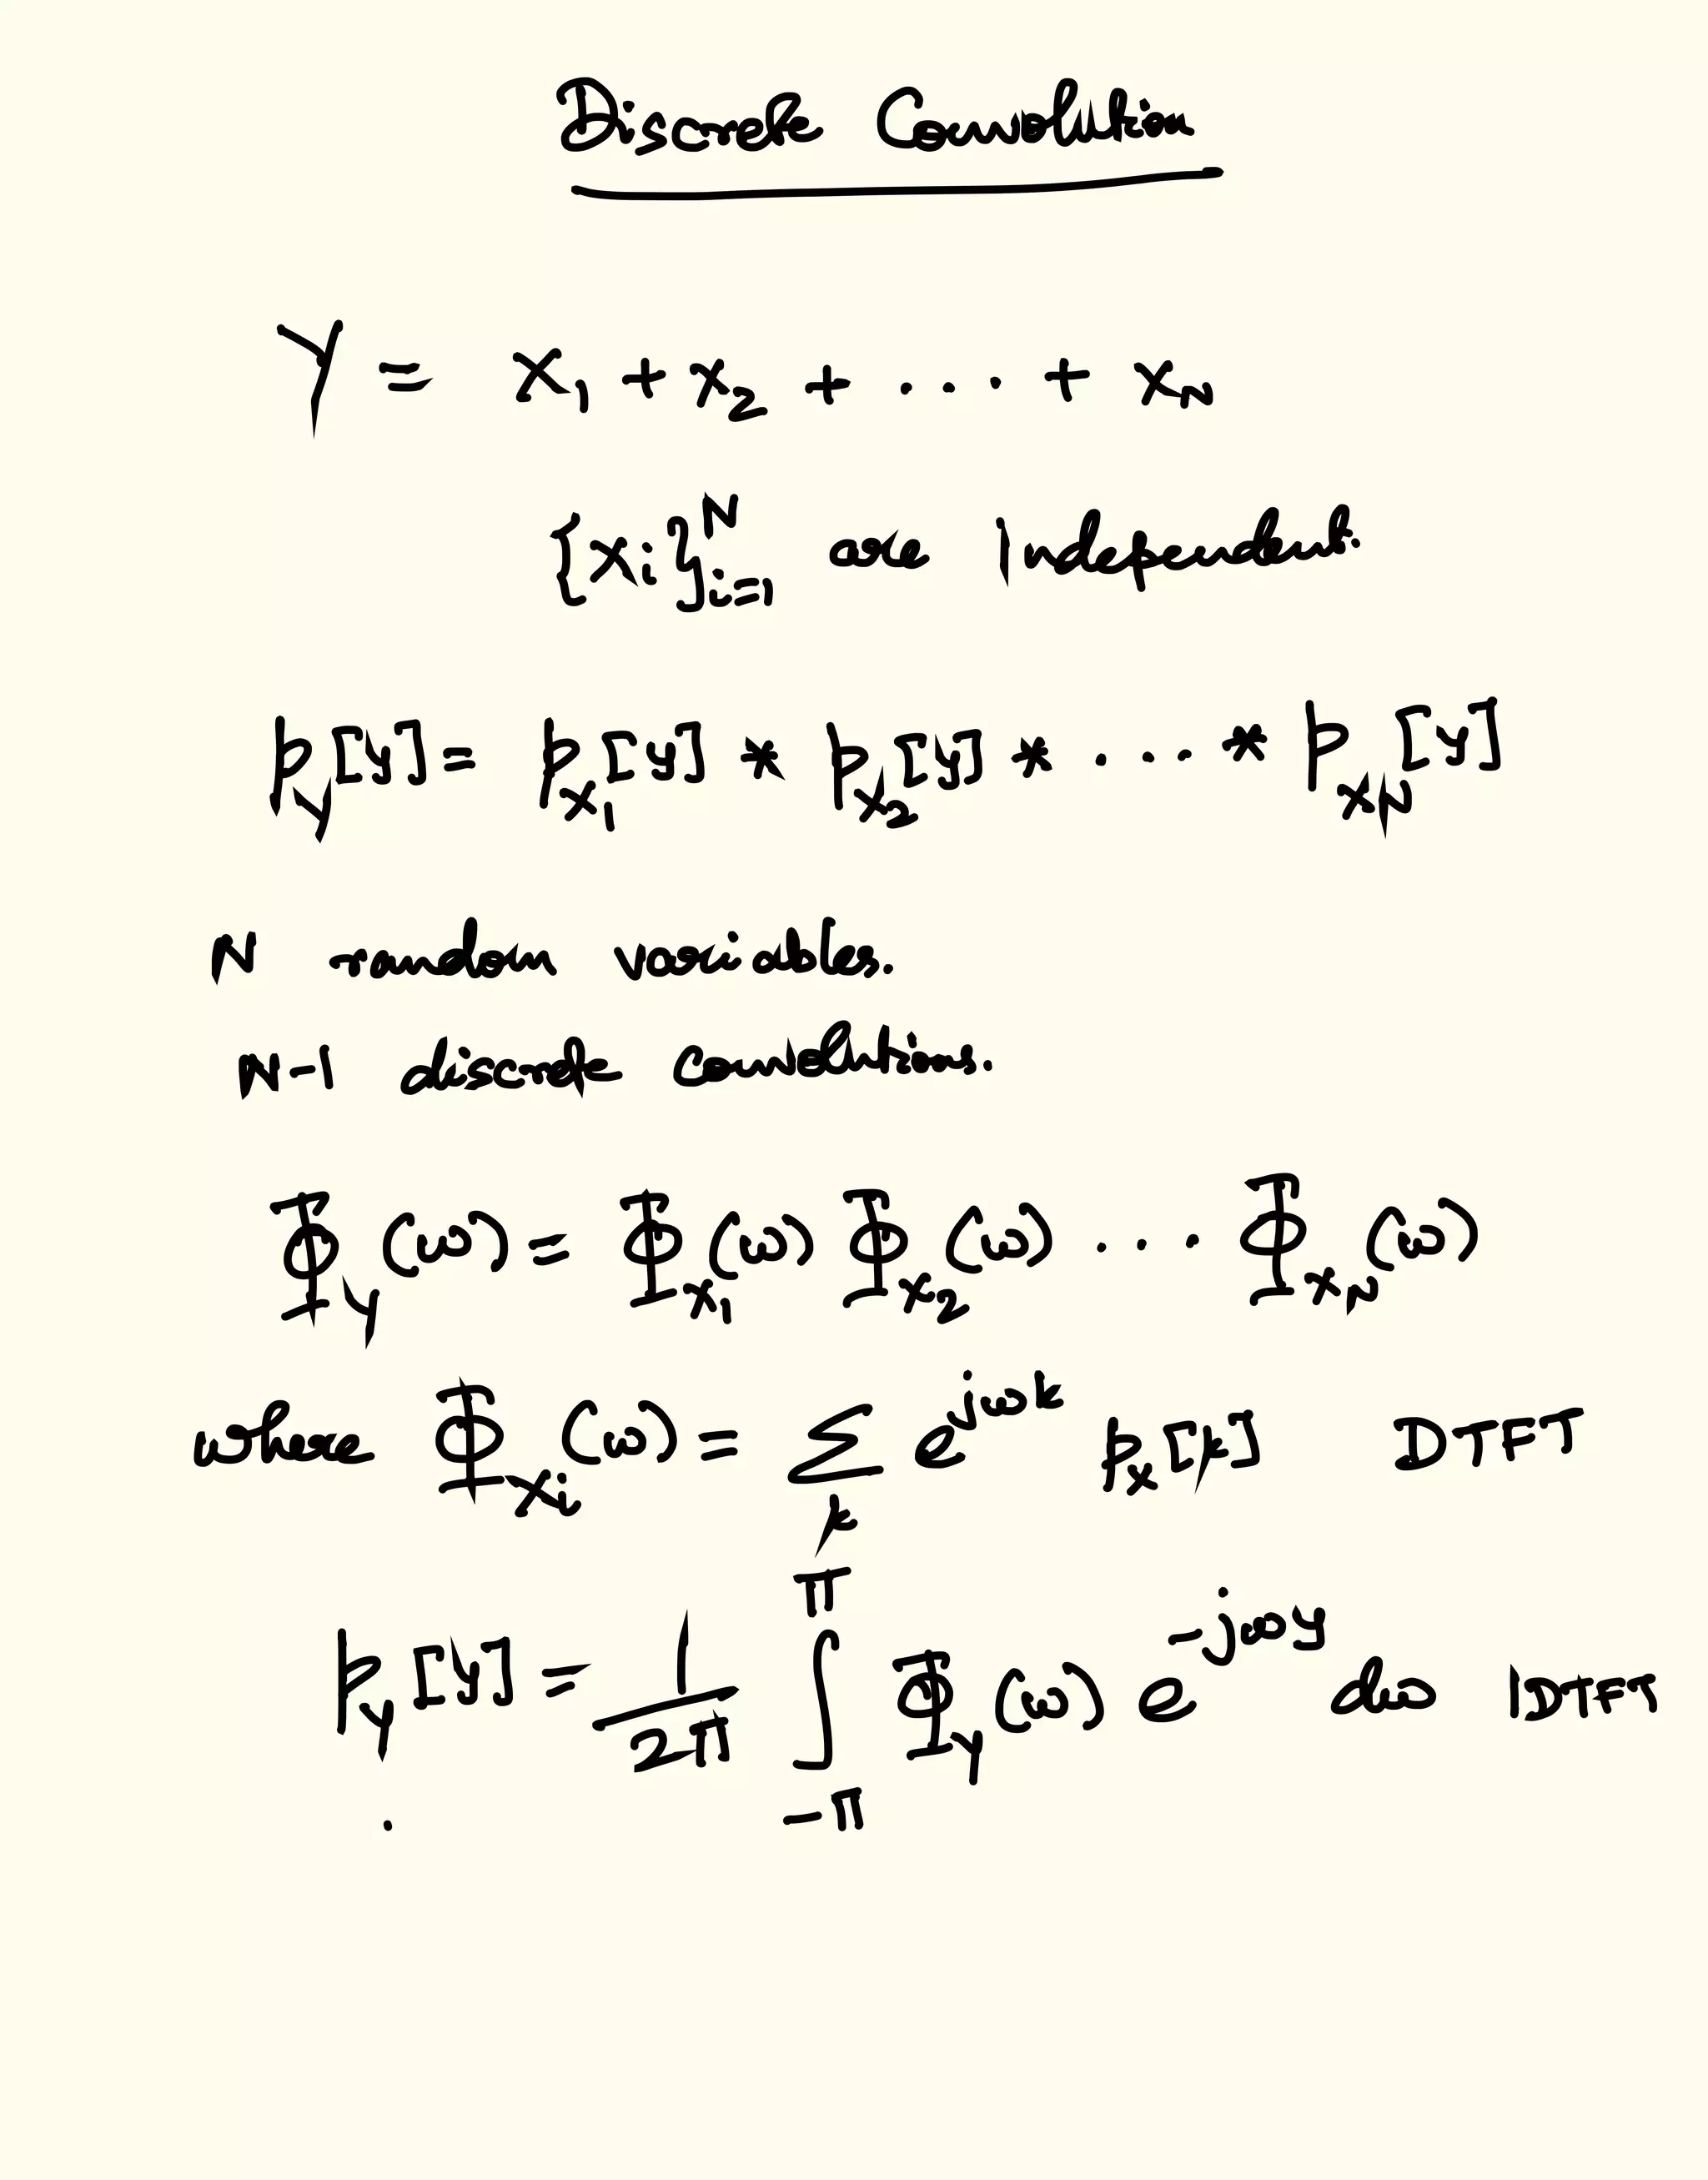 Discrete Convolution
Y = X₁ + X₂ + . . . + X_N
{Xi}ᴺᵢ₌₁ are independent.
p_Y[y] = p_X₁[y] * p_X₂[y] * . . . * p_X_N[y]
N random variables.
N-1 discrete convolutions.
Φ_Y(ω) = Φ_X₁(ω) Φ_X₂(ω) . . . Φ_X_N(ω)
where Φ_Xᵢ(ω) = Σ_k e^{jωk} p_X[k] DTFT
p_Y[y] = 1/2π ∫_{-π}^{π} Φ_Y(ω) e^{-jωy} dω IDTFT